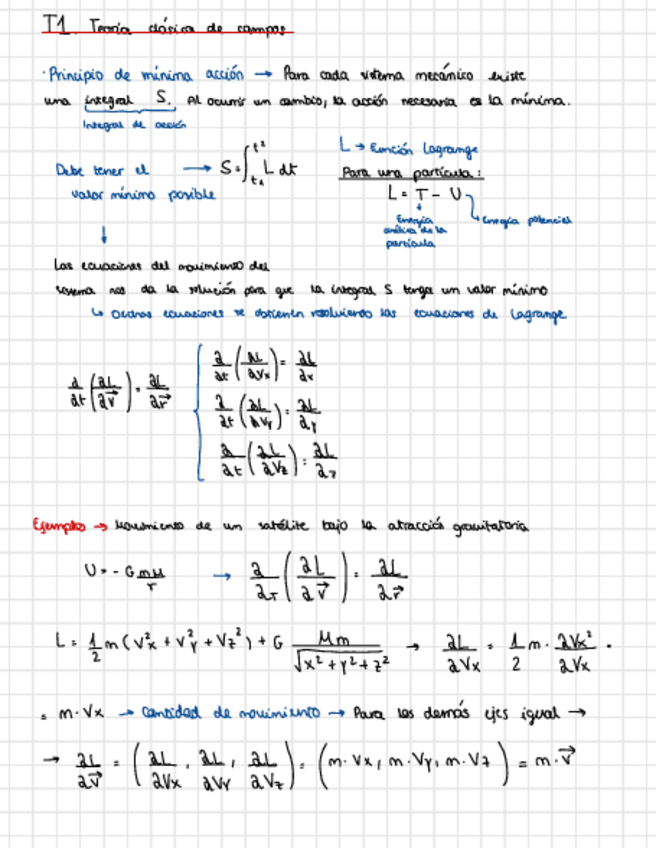 T1 Teoría clásica de campos
· Principio de mínima acción → Para cada sistema mecánico existe
una integral S. Al ocurrir un cambio, la acción necesaria es la mínima.
Integral de acción
Debe tener el valor mínimo posible → S = ∫_{t1}^{t2} L dt
L → Función Lagrange
Para una partícula:
L = T - U
Energía cinética de la partícula
Energía potencial
↓
Las ecuaciones del movimiento del
sistema nos da la solución para que la integral S tenga un valor mínimo
↳ Dichas ecuaciones se obtienen resolviendo las ecuaciones de Lagrange
∂/∂t (∂L/∂v⃗) = ∂L/∂r⃗
∂/∂t (∂L/∂Vx) = ∂L/∂x
∂/∂t (∂L/∂Vy) = ∂L/∂y
∂/∂t (∂L/∂Vz) = ∂L/∂z
Ejemplo → Movimiento de un satélite bajo la atracción gravitatoria
U = - G mM/r → ∂/∂t (∂L/∂v⃗) = ∂L/∂r⃗
L = 1/2 m (V²x + V²y + Vz²) + G Mm/√(x² + y² + z²) → ∂L/∂Vx = 1/2 m · ∂Vx²/∂Vx =
= m · Vx → Cantidad de movimiento → Para los demás ejes igual →
→ ∂L/∂v⃗ = (∂L/∂Vx, ∂L/∂Vy, ∂L/∂Vz) = (m · Vx, m · Vy, m · Vz) = m · v⃗